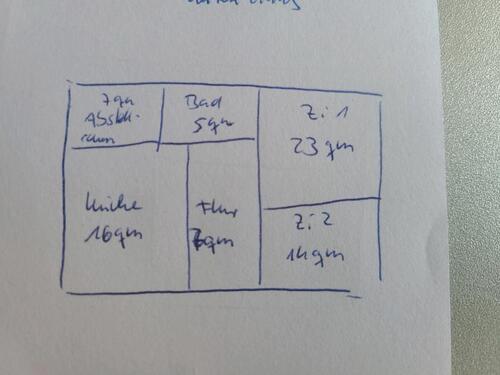 7qm
Abstell-
raum
Bad
5qm
Zi 1
23 qm
Küche
16qm
Flur
qm
Zi 2
14qm